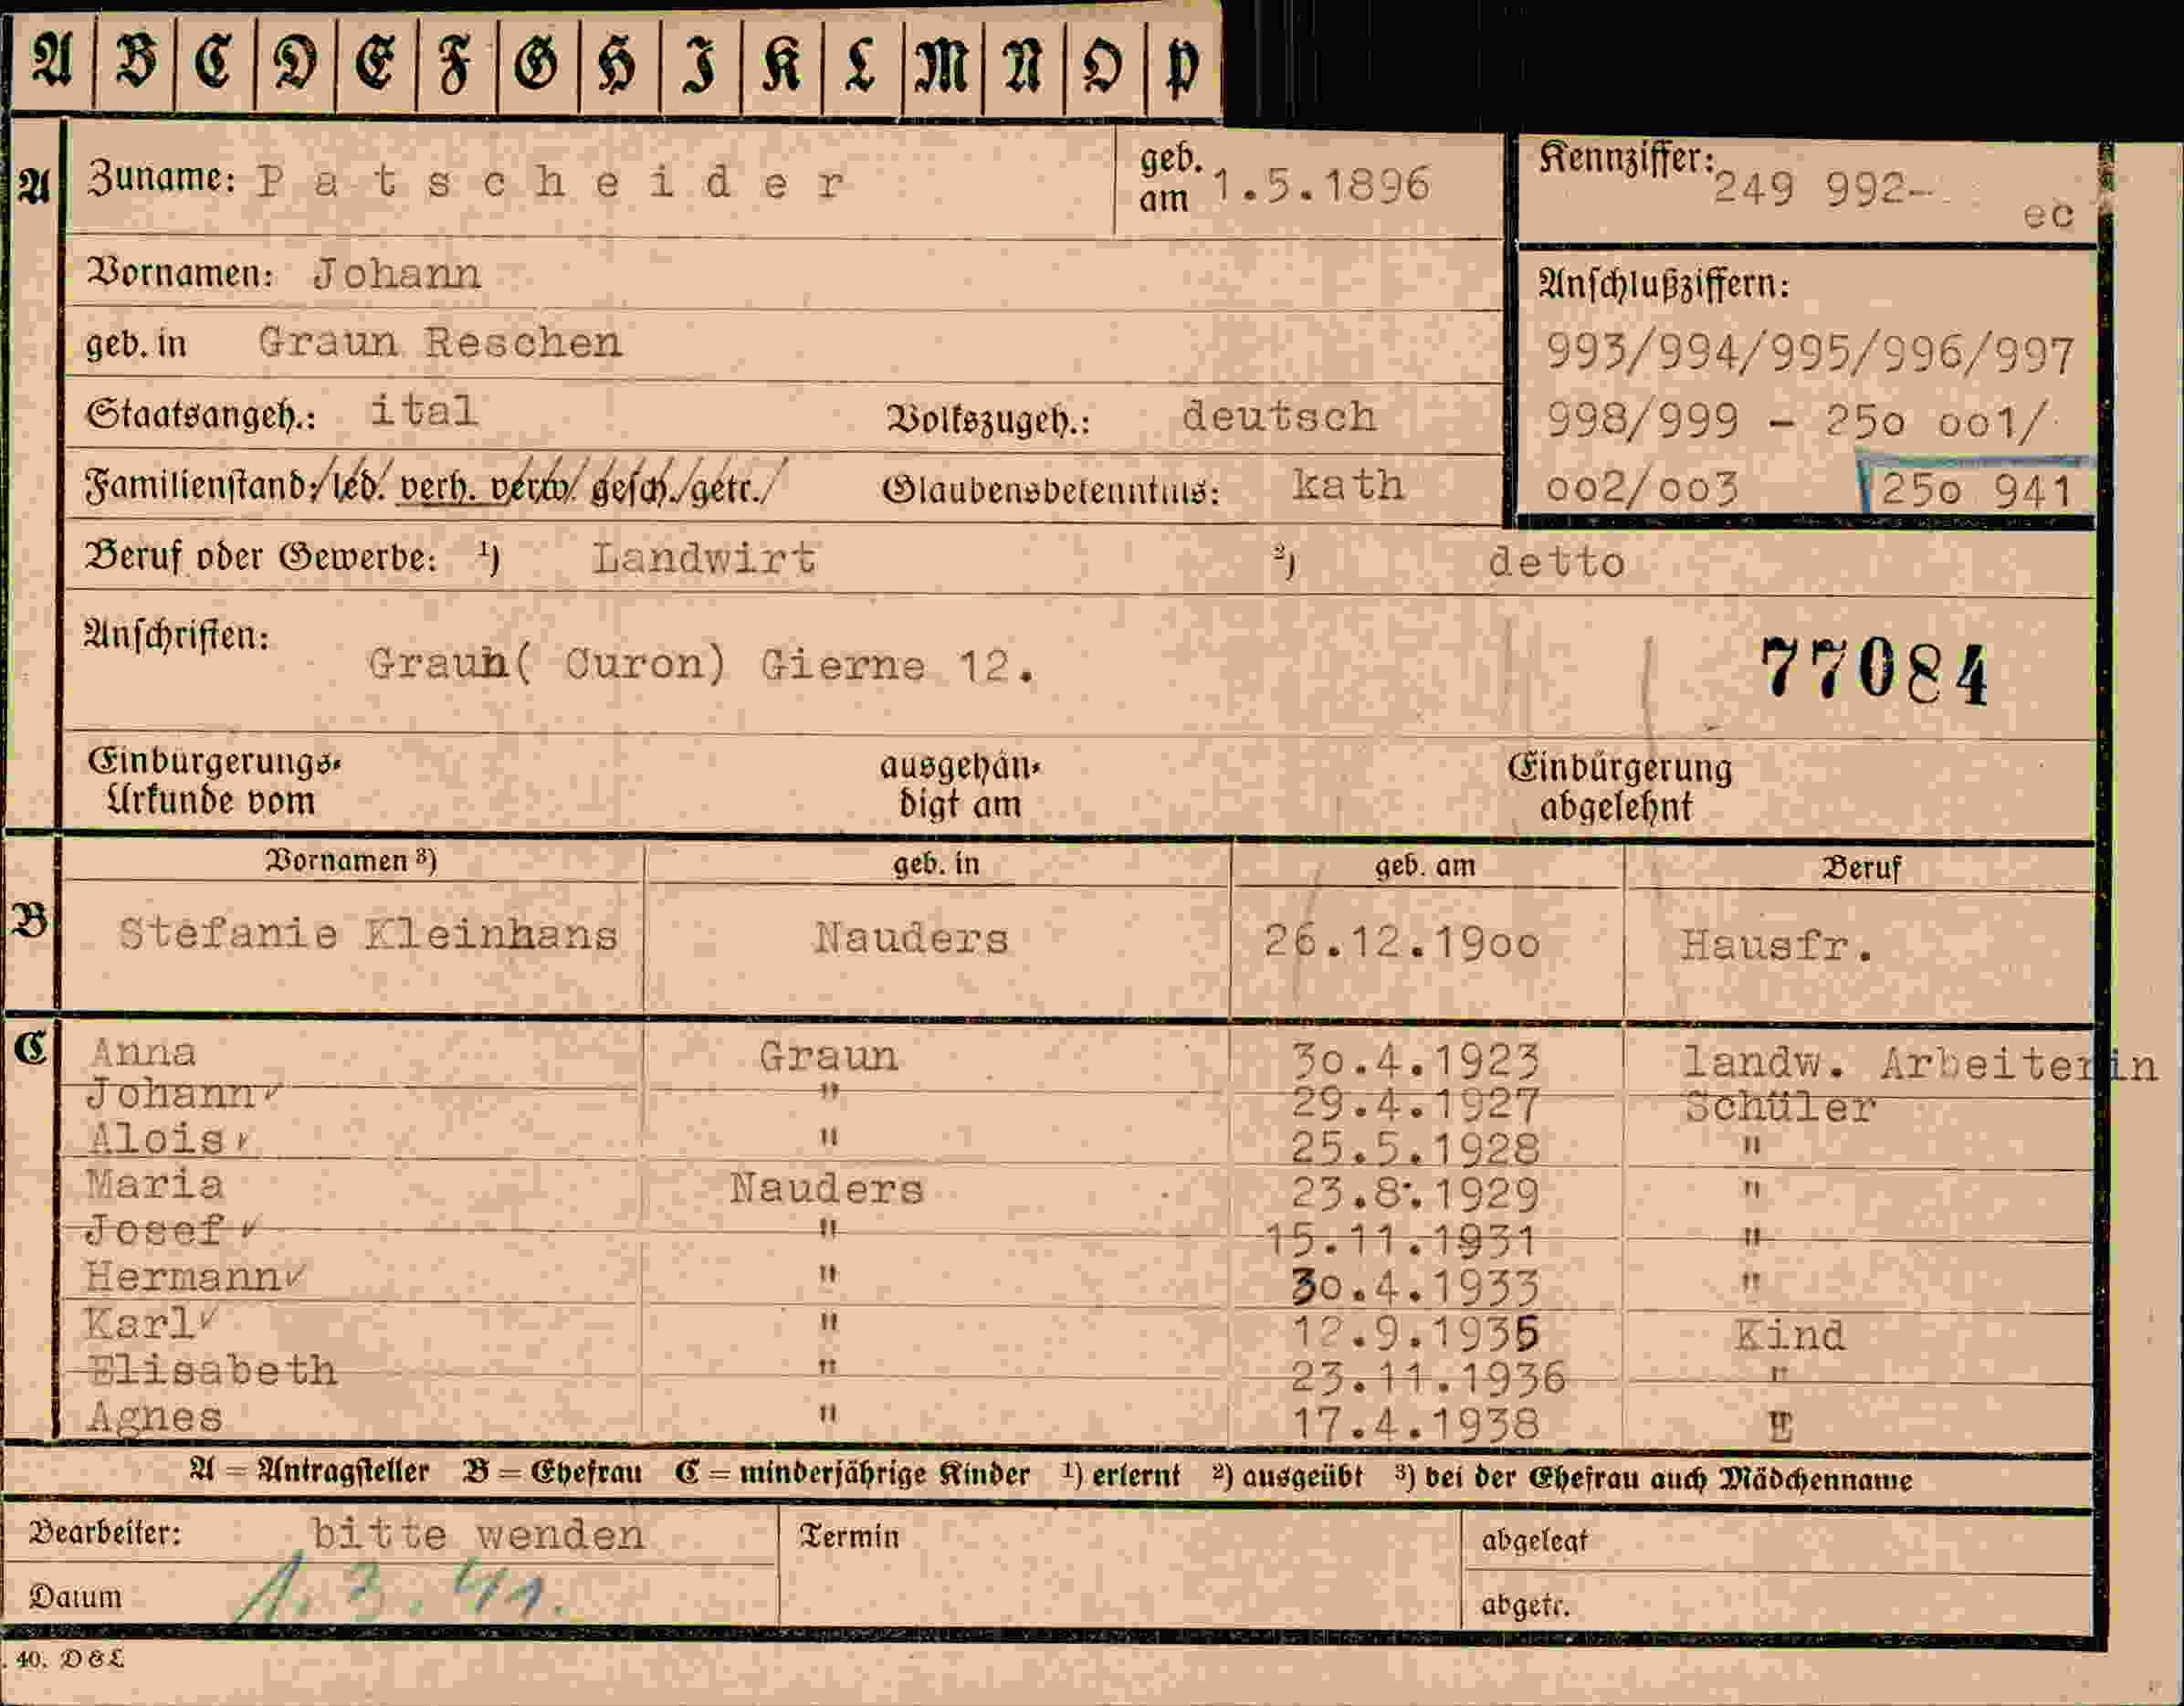 A B C D E F G H I K L M N O P
A Zuname: Patscheider geb. am 1.5.1896 Kennziffer: 249 992- ec
Vornamen: Johann
Anschlußziffern:
geb. in Graun Reschen 993/994/995/996/997
Staatsangeh.: ital Volkszugeh.: deutsch 998/999 - 25o oo1/
Familienstand:/led./ verh. verw/ gesch./getr./ Glaubensbekenntnis: kath oo2/oo3 25o 941
Beruf oder Gewerbe: ¹) Landwirt ²) detto
Anschriften: Graun( Curon) Gierne 12. 77084
Einbürgerungs- ausgehän- Einbürgerung
Urkunde vom digt am abgelehnt
Vornamen ³) geb. in geb. am Beruf
B Stefanie Kleinhans Nauders 26.12.19oo Hausfr.
C Anna Graun 3o.4.1923 landw. Arbeiterin
Johann✓ " 29.4.1927 Schüler
Alois✓ " 25.5.1928 "
Maria Nauders 23.8.1929 "
Josef✓ " 15.11.1931 "
Hermann✓ " 3o.4.1933 "
Karl✓ " 12.9.1935 Kind
Elisabeth " 23.11.1936 "
Agnes " 17.4.1938 "
A = Antragsteller B = Ehefrau C = minderjährige Kinder ¹) erlernt ²) ausgeübt ³) bei der Ehefrau auch Mädchenname
Bearbeiter: bitte wenden Termin abgelegt
Datum 1.3.41. abgetr.
40. D & L